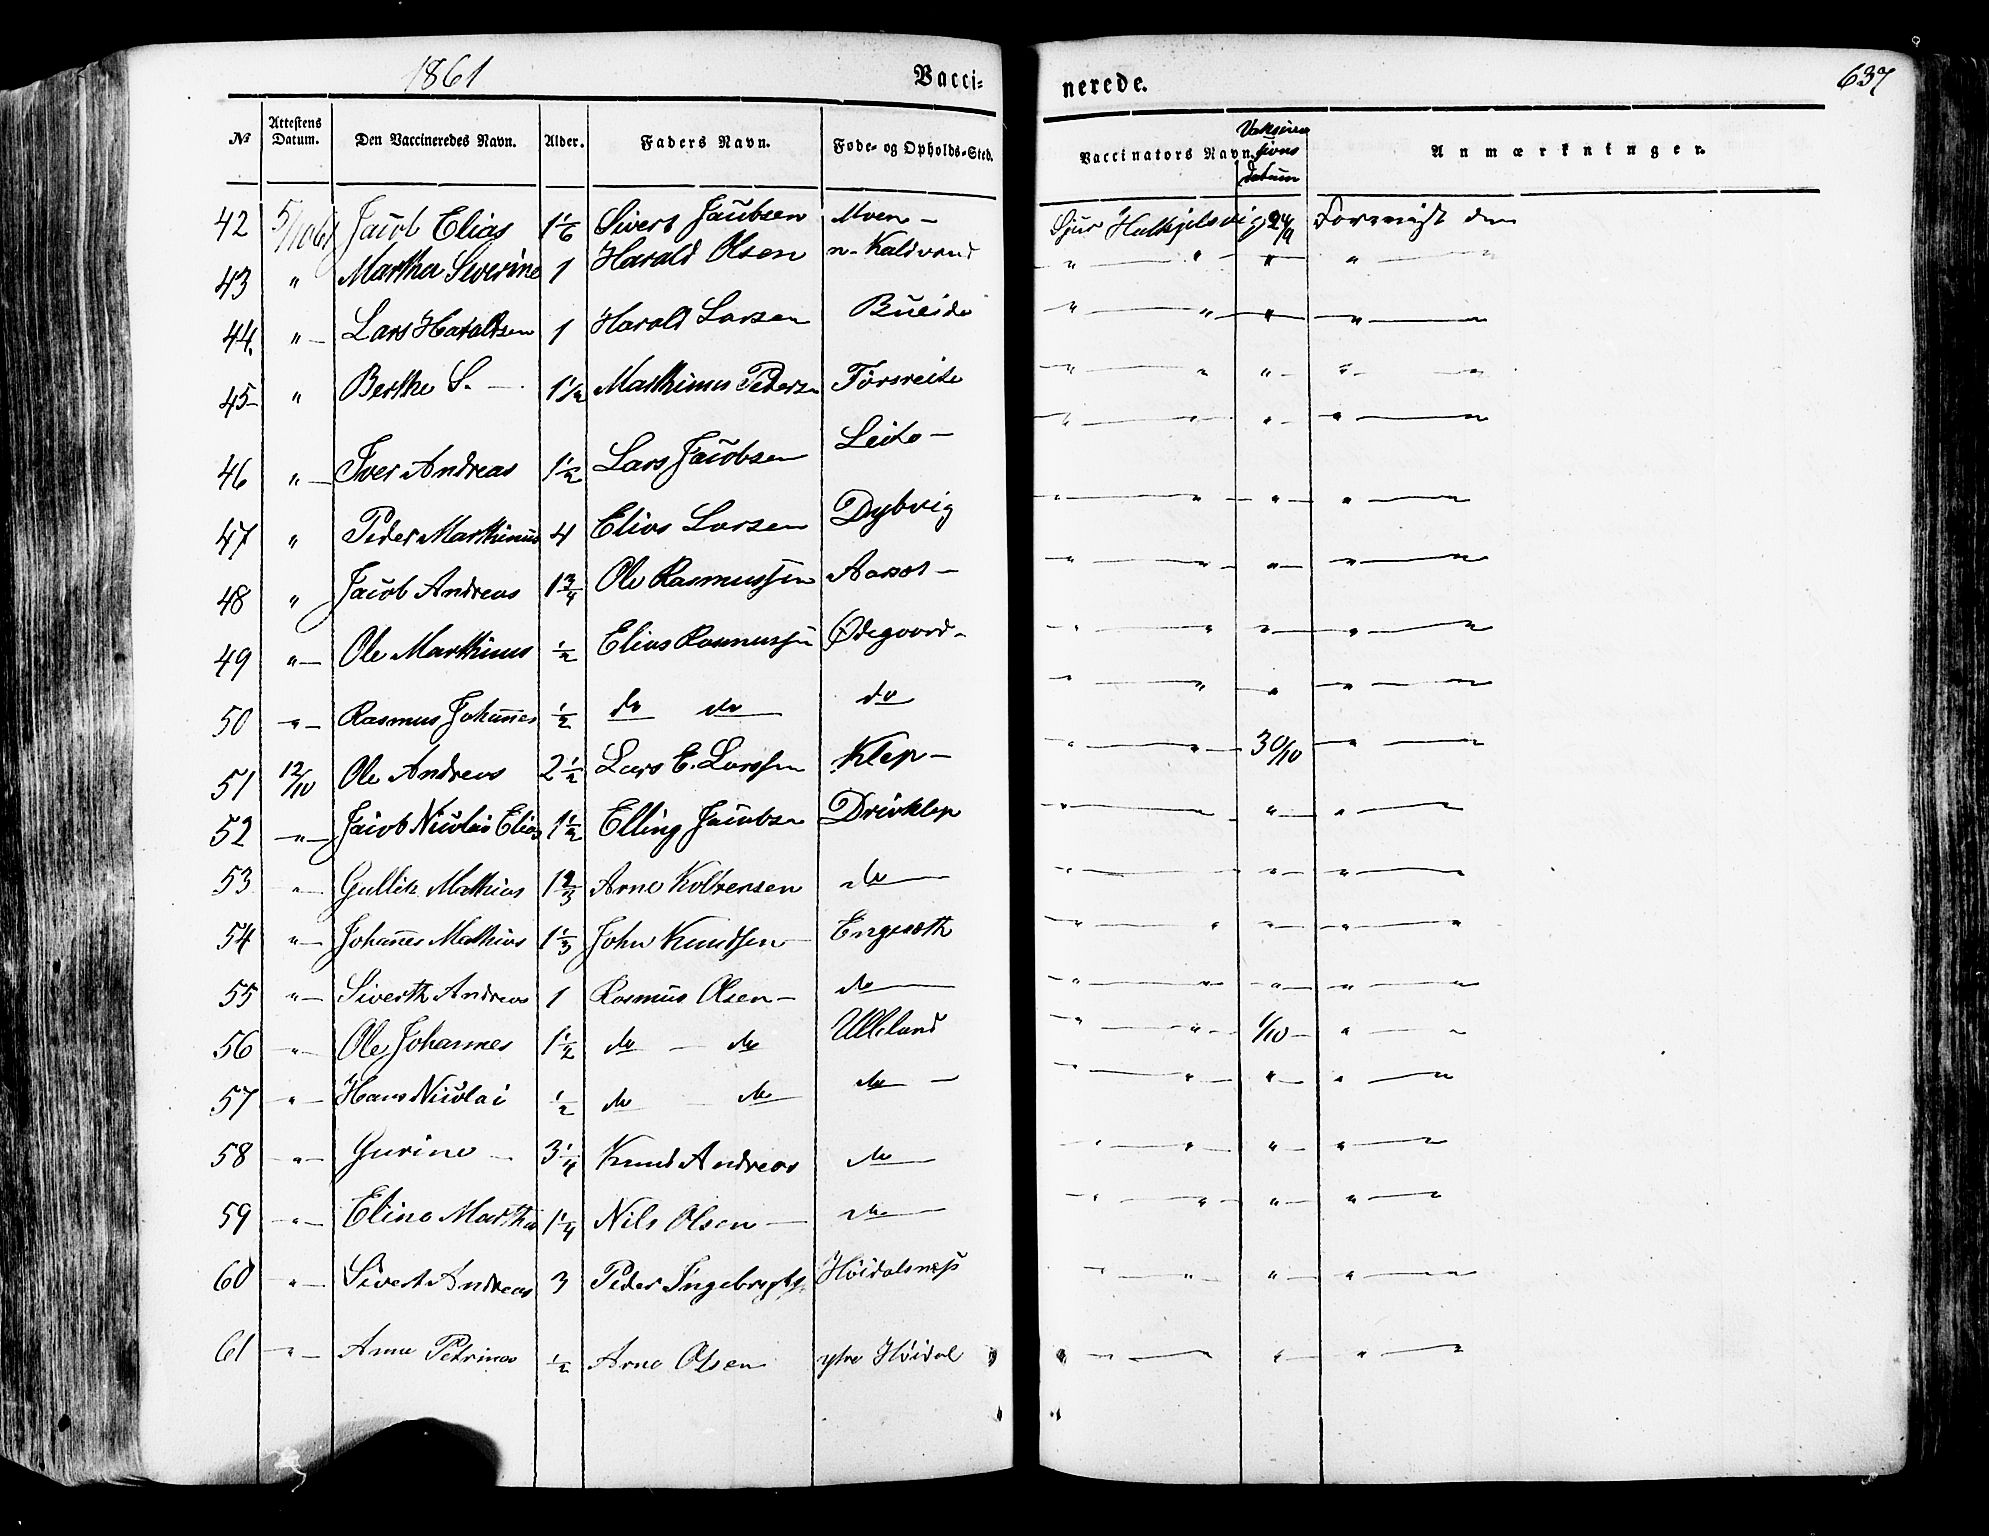 1861
Vacci-
nerede.
637
№ Attestens Datum. Den Vaccineredes Navn. Alder. Faders Navn. Føde- og Opholds-Sted. Vaccinators Navn. Vaksina sions datum Anmærkninger.
42 5/10 61 Jacob Elias 1 1/6 Sivert Jacobsen Moen - Sjur Halkjelsvig 24/9 Foreviist den
43 " Martha Severine 1 Harald Olsen n. Kaldvand " " " " "
44. " Lars Haraldsen 1 Harald Larsen Bueide " " " " "
45 " Berthe S. 1 1/2 Marthinus Peders Torsreite " " " " "
46 " Iver Andreas 1 1/2 Lars Jacobsen Leite - " " " " "
47 " Peder Marthinus 4 Elias Larsen Dybvig " " " " "
48 " Jacob Andreas 1 3/4 Ole Rasmussen Aarset - " " " " "
49 " Ole Marthinus 1/2 Elias Rasmussen Ødegaard - " " " " "
50 " Rasmus Johannes 1/2 do do do " " " " "
51 12/10 Ole Andreas 2 1/2 Lars E. Larssen Klep - " " 30/10 " "
52 " Jacob Nicolai Elias 1 1/2 Elling Jacobsen Drivklep " " " "
53 " Gullik Mathias 1 2/3 Arne do " " " " "
54 " Johannes Mathias 1 1/3 John Knudsen Engesæth " " " " "
55 " Siverth Andreas 1 Rasmus Olsen - do " " " " "
56 " Ole Johannes 1 1/2 do - do Ulleland " " 1/10 " "
57 " Hans Nicolai 1/2 do - do do - " " " " "
58 " Gurine 3 1/4 Knud Andreas do " " " " "
59 " Eline Martha 1 1/4 Nils Olsen do " " " " "
60 " Sivert Andreas 3 Peder Ingebrigts Høidalsnæs " " " " "
61 " Anne Petrine 1/2 Arne Olsen ytre Høidal " " " " "